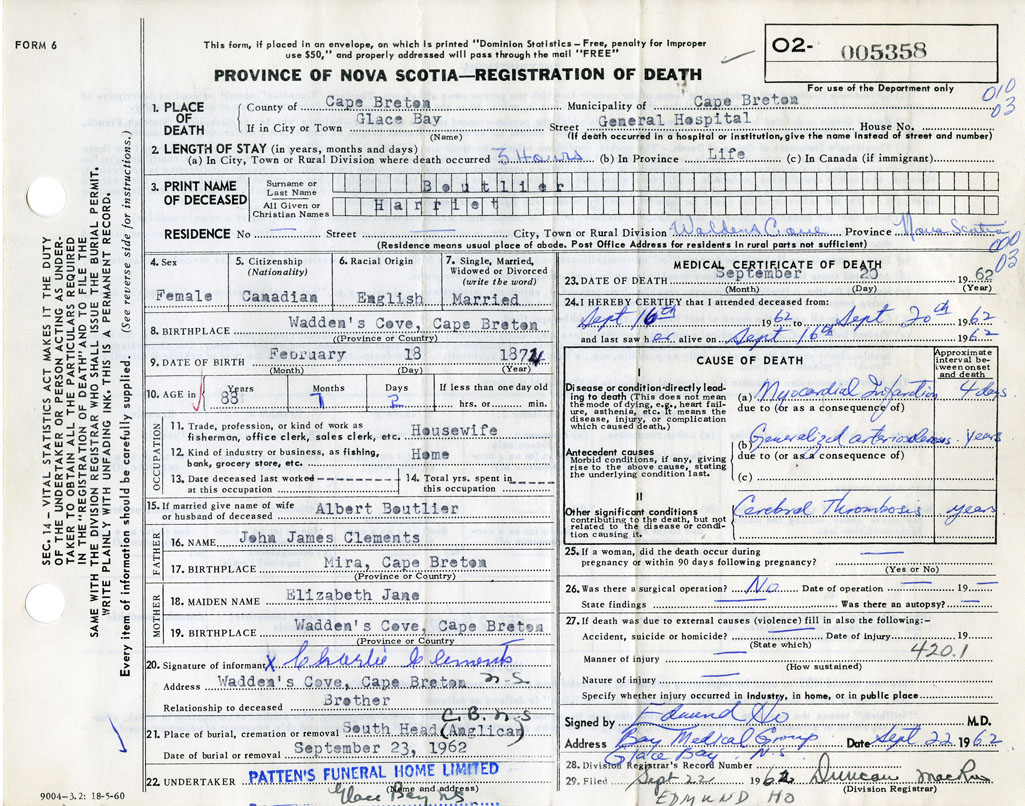 FORM 6
This form, if placed in an envelope, on which is printed "Dominion Statistics – Free, penalty for improper
use $50," and properly addressed will pass through the mail "FREE"
O2- 005358
For use of the Department only
PROVINCE OF NOVA SCOTIA—REGISTRATION OF DEATH
010
03
1. PLACE OF DEATH
County of Cape Breton Municipality of Cape Breton
If in City or Town Glace Bay Street General Hospital House No.
(Name) (If death occurred in a hospital or institution, give the name instead of street and number)
2. LENGTH OF STAY (in years, months and days)
(a) In City, Town or Rural Division where death occurred 3 Hours (b) In Province Life (c) In Canada (if immigrant)
3. PRINT NAME OF DECEASED
Surname or Last Name Boutlier
All Given or Christian Names Harriet
RESIDENCE No — Street — City, Town or Rural Division Waldens Cove Province Nova Scotia
(Residence means usual place of abode. Post Office Address for residents in rural parts not sufficient)
000
03
4. Sex Female
5. Citizenship (Nationality) Canadian
6. Racial Origin English
7. Single, Married, Widowed or Divorced (write the word) Married
8. BIRTHPLACE Wadden's Cove, Cape Breton
(Province or Country)
9. DATE OF BIRTH February 18 1874
(Month) (Day) (Year)
10. AGE in Years 88 Months 7 Days 2 If less than one day old hrs. or min.
OCCUPATION
11. Trade, profession, or kind of work as fisherman, office clerk, sales clerk, etc. Housewife
12. Kind of industry or business, as fishing, bank, grocery store, etc. Home
13. Date deceased last worked at this occupation
14. Total yrs. spent in this occupation
15. If married give name of wife or husband of deceased Albert Boutlier
FATHER
16. NAME John James Clements
17. BIRTHPLACE Mira, Cape Breton
(Province or Country)
MOTHER
18. MAIDEN NAME Elizabeth Jane
19. BIRTHPLACE Wadden's Cove, Cape Breton
(Province or Country)
20. Signature of informant X Charlie Clements
Address Wadden's Cove, Cape Breton N-S
Relationship to deceased Brother
C.B. N-S
21. Place of burial, cremation or removal South Head (Anglican)
Date of burial or removal September 23, 1962
22. UNDERTAKER PATTEN'S FUNERAL HOME LIMITED
(Name and address)
Glace Bay NS
MEDICAL CERTIFICATE OF DEATH
23. DATE OF DEATH September 20 1962
(Month) (Day) (Year)
24. I HEREBY CERTIFY that I attended deceased from:
Sept 16th 1962 to Sept 20th 1962
and last saw her alive on Sept 16th 1962
CAUSE OF DEATH
Approximate interval between onset and death
I
Disease or condition directly leading to death (This does not mean the mode of dying, e.g., heart failure, asthenia, etc. It means the disease, injury, or complication which caused death.)
(a) Myocardial Infarction 4 days
due to (or as a consequence of)
Antecedent causes
Morbid conditions, if any, giving rise to the above cause, stating the underlying condition last.
(b) Generalized arteriosclerosis years
due to (or as a consequence of)
(c)
II
Other significant conditions
contributing to the death, but not related to the disease or condition causing it.
Cerebral Thrombosis years
25. If a woman, did the death occur during pregnancy or within 90 days following pregnancy? —
(Yes or No)
26. Was there a surgical operation? No Date of operation — 19 —
State findings — Was there an autopsy? —
27. If death was due to external causes (violence) fill in also the following:-
Accident, suicide or homicide? — Date of injury 19
(State which)
420.1
Manner of injury —
(How sustained)
Nature of injury —
Specify whether injury occurred in industry, in home, or in public place
Signed by Edmund Ho M.D.
Address Bay Medical Group Date Sept 22 1962
Glace Bay, N.S.
28. Division Registrar's Record Number
29. Filed Sept 22 1962 Duncan MacRae
(Division Registrar)
EDMUND HO
SEC. 14 – VITAL STATISTICS ACT MAKES IT THE DUTY
OF THE UNDERTAKER OR PERSON ACTING AS UNDER-
TAKER "TO OBTAIN ALL THE PARTICULARS REQUIRED
IN THE "REGISTRATION OF DEATH" AND TO FILE THE
SAME WITH THE DIVISION REGISTRAR WHO SHALL ISSUE THE BURIAL PERMIT.
WRITE PLAINLY WITH UNFADING INK. THIS IS A PERMANENT RECORD.
Every item of information should be carefully supplied. (See reverse side for instructions.)
9004-3.2: 18-5-60